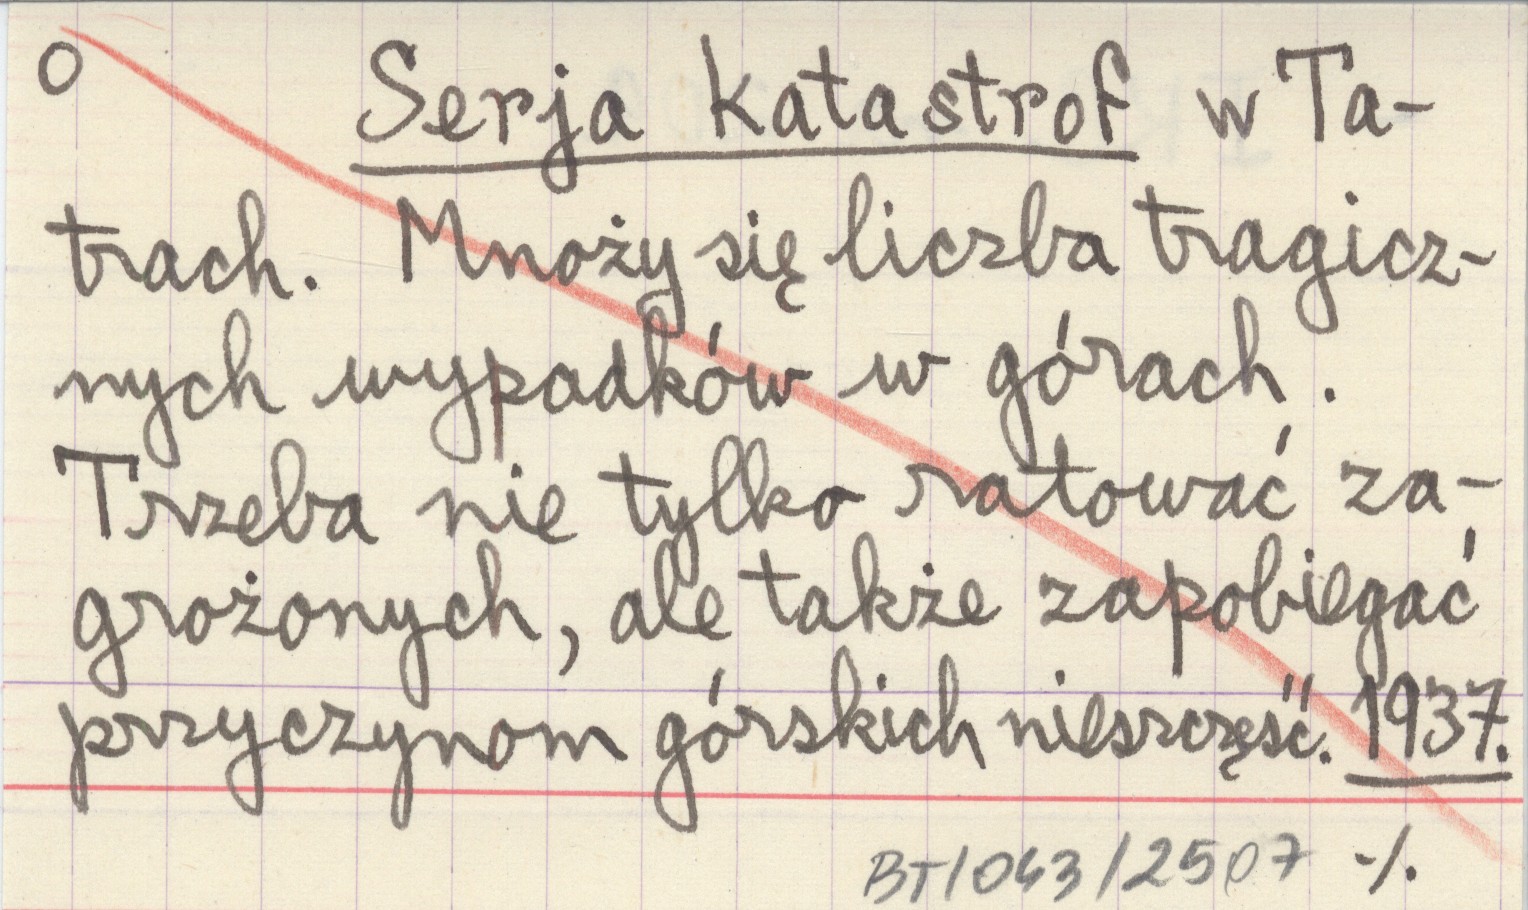 O Serja katastrof w Ta-
trach. Mnoży się liczba tragicz-
nych wypadków w górach.
Trzeba nie tylko ratować za-
grożonych, ale także zapobiegać
przyczynom górskich nieszczęść. 1937.
BT/043/2507 -/.